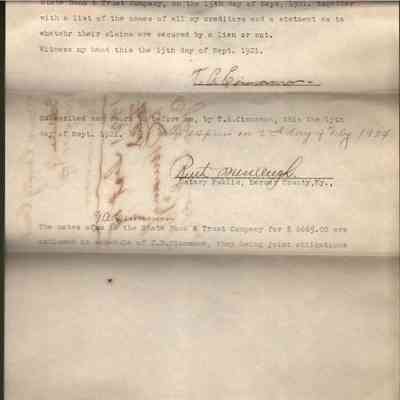 State Bank & Trust Company, on the 15th day of Sept. 1921. together
with a list of the names of all my creditors and a stetment as to
whatehr their claims are secured by a lien or out.
Witness my hand this the 15th day of Sept. 1921.
Subscribed and sworn to before me, by T.A.Cinnamon, this the 15th
day of Sept. 1921. My Com expires on 2nd day of Feby 1924
Ruth
Notary Public, Mercer County,Ky.,
The notes of the State Bank & Trust Company for $ 6665.00 are
in schedule of they being joint obligations